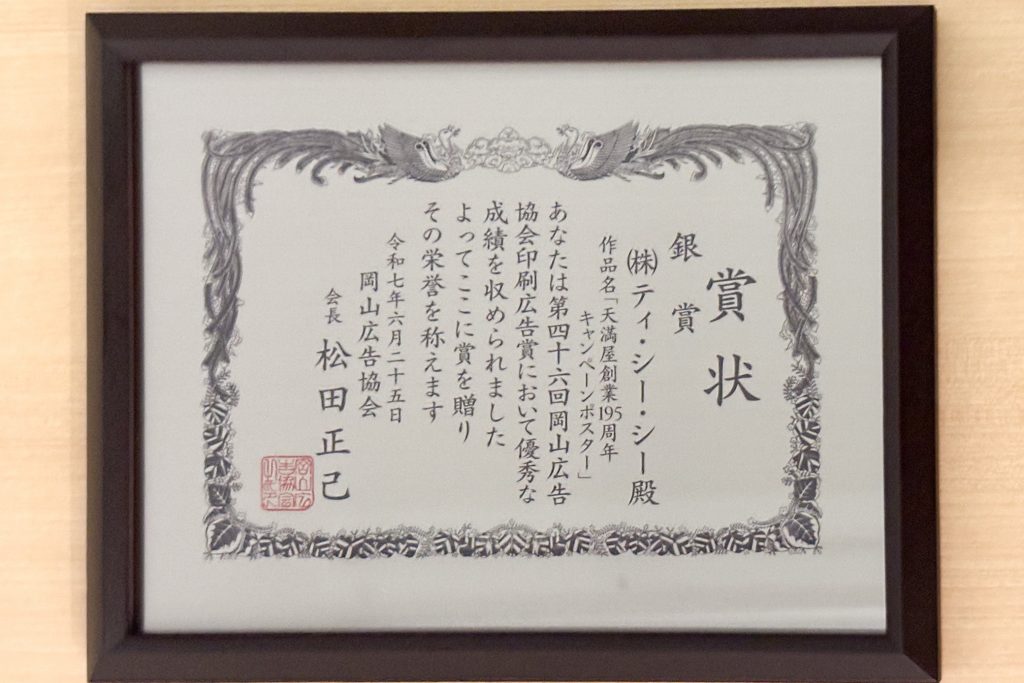 賞状
銀賞
㈱ティ・シー・シー殿
作品名「天満屋創業195周年
キャンペーンポスター」
あなたは第四十六回岡山広告
協会印刷広告賞において優秀な
成績を収められました
よってここに賞を贈り
その栄誉を称えます
令和七年六月二十五日
岡山広告協会
会長 松田正己